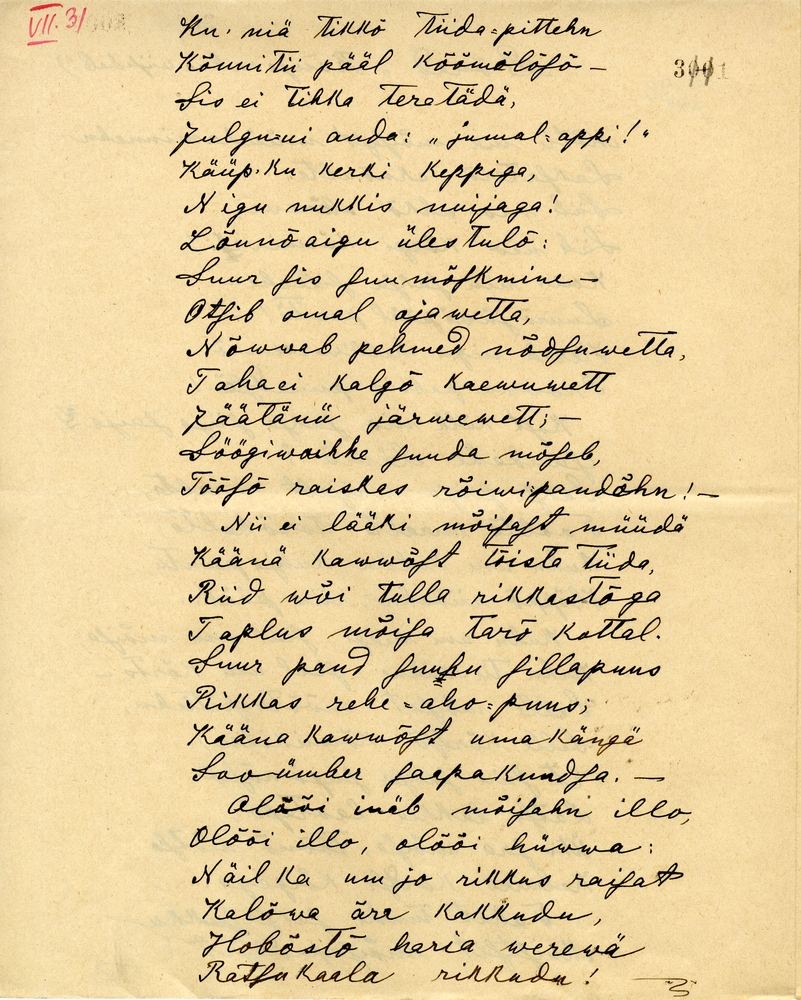 VII. 31
3001
Ku, niä tikkõ tiida-pittehn
Kõnnitii pääl kõõmõlõsõ —
Sis ei tihka teretädä,
Julgu=ui anda: „jumal=appi!“
Käüp, ku kerki keppiga,
Nigu nukkis nuijaga!
Lõunõaigu üles tulõ:
Suur sis suu mõskmine —
Otsib omal ojawetta,
Nõwwab pehmed nõdsuwetta,
Taha ei kalgõ kaewuwett
Jäätänü järwewett; —
Söögiwaihhe suuda mõseb,
Töösõ raiskas rõiwipandõhn! —
Nii ei lääki mõisast müüdä
Käänä kawwõst tõista tiida,
Riid wõi tulla rikkastõga
Taplus mõisa tarõ kottal.
Suur pand suuhu sillapuus
Rikkas rehe=aho=puus;
Kääna kawwõst uma kängä
Soo ümber saapakundsa. —
Olõõi inäb mõisahn illo,
Olõõi illo, olõõi hüwwa:
Näil ka um jo rikkus raisat
Kalõwa äre kakkudu,
Hobõstõ haria werewä
Ratsukaala rikkudu!